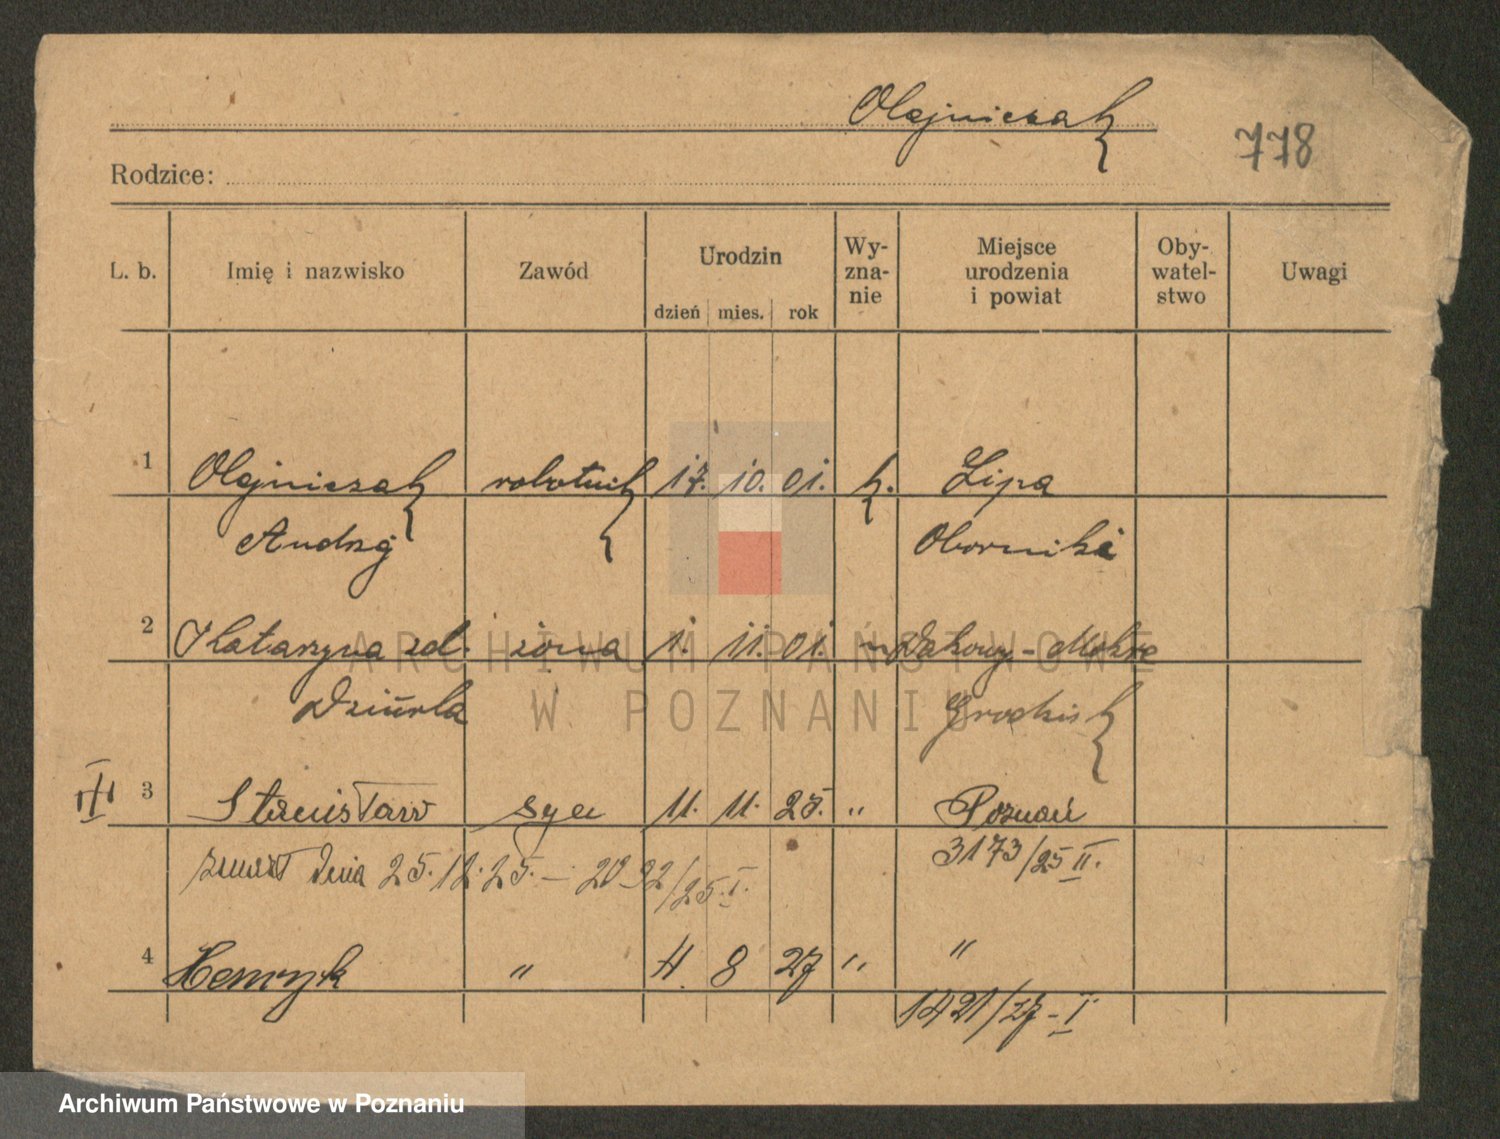 Olejniczak
778
Rodzice:
L. b. Imię i nazwisko Zawód Urodzin dzień mies. rok Wy-zna-nie Miejsce urodzenia i powiat Oby-watel-stwo Uwagi
1 Olejniczak robotnik 17. 10. 01. k. Lipa
Andrzej Oborniki
2 Katarzyna zd. żona 1. 11. 01. " Dakowy-Mokre
Dziurla Grodzisk
III 3 Stanisław syn 11. 11. 25. " Poznań
3173/25 II.
zmarł dnia 25.12.25. – 2092/25.I.
4 Henryk " 4. 8 27 " "
1421/27-I
ARCHIWUM PAŃSTWOWE
W POZNANIU
Archiwum Państwowe w Poznaniu